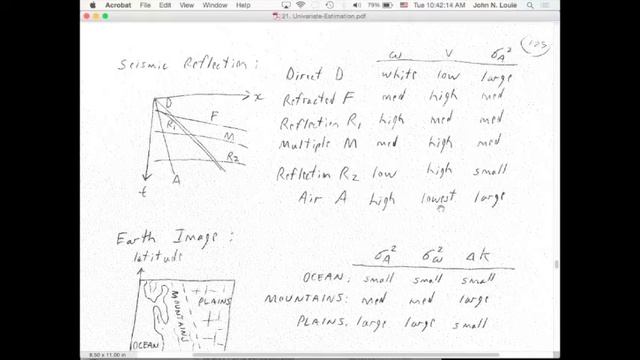 Acrobat File Edit View Window Help 79% Tue 10:42:14 AM John N. Louie
21. Univariate-Estimation.pdf
125
Seismic Reflection:
ω V σA²
Direct D white low large
Refracted F med high med
Reflection R1 high med med
Multiple M med med med
Reflection R2 low high small
Air A high lowest large
x
D
F
R1
M
R2
A
t
Earth Image:
latitude
σA² σω² Δk
OCEAN: small small small
MOUNTAINS: med med large
PLAINS: large large small
MOUNTAINS
PLAINS
OCEAN
8.50 x 11.00 in